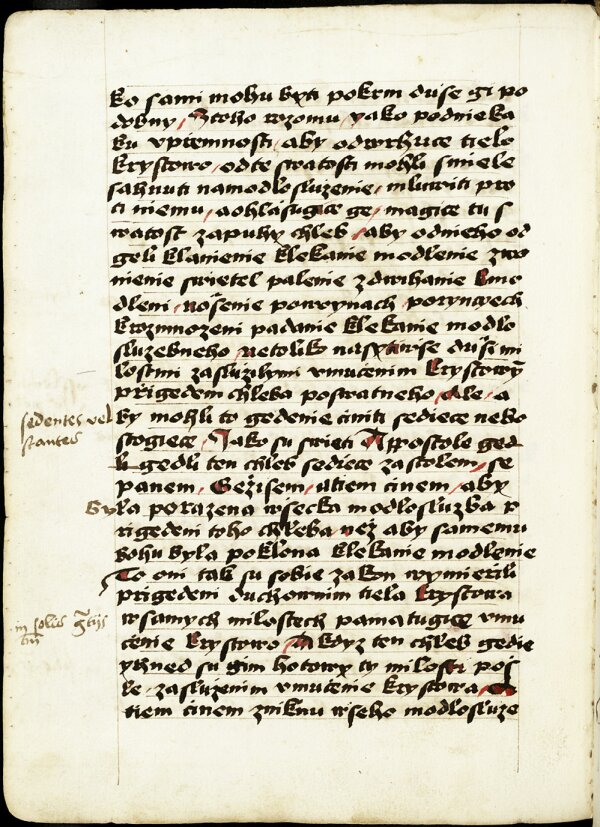 ko sami mohu byti pokrm duse gi po
dobny / Ztoho rozomu / yako podnieka
ku vpiemnosti / aby odwrhuce tielo
krystowo / odte swatosti mohli smiele
sahnuti namodlosluzenie / mluwiti pro
ti niemu / aohlasugice ge / magice tu s
watost zapuhy chleb / aby odnieho od
geli klanienie klekanie modlenie zwo
nienie swietel palenie zdwihanie kmo
dleni / nosenie powoynach porynwech
krozmnozeni padanie klekanie modlo
sluzebneho / netoliko nasytirse dusi mi
lostmi zasluzilymi vmucenim krystowy
prigedem chleba poswatneho / Ale / a
sedentes vel
stantes
by mohli to gedenie ciniti sediece nebo
stogiece / Jako su swieti Apostole ged
li gedli ten chleb sediece zastolem / se
panem / Gezisem / utiem cinem / aby
byla porazena wsecka modlosluzba p
rigedeni toho chleba / nez aby samemu
bohu byla poklona klekanie modlenie
To oni tak su sobie zakon wymierili
prigedeni duchownim tiela krystowa
in solis
wsamych milostech pamatugice vmu
cenie krystowo / A kdyz ten chleb gedie
yhned su gim hotowy ty milosti pos
le / zasluzenim vmucenie krystowa / A
tiem cinem zniknu wseho modlosluze